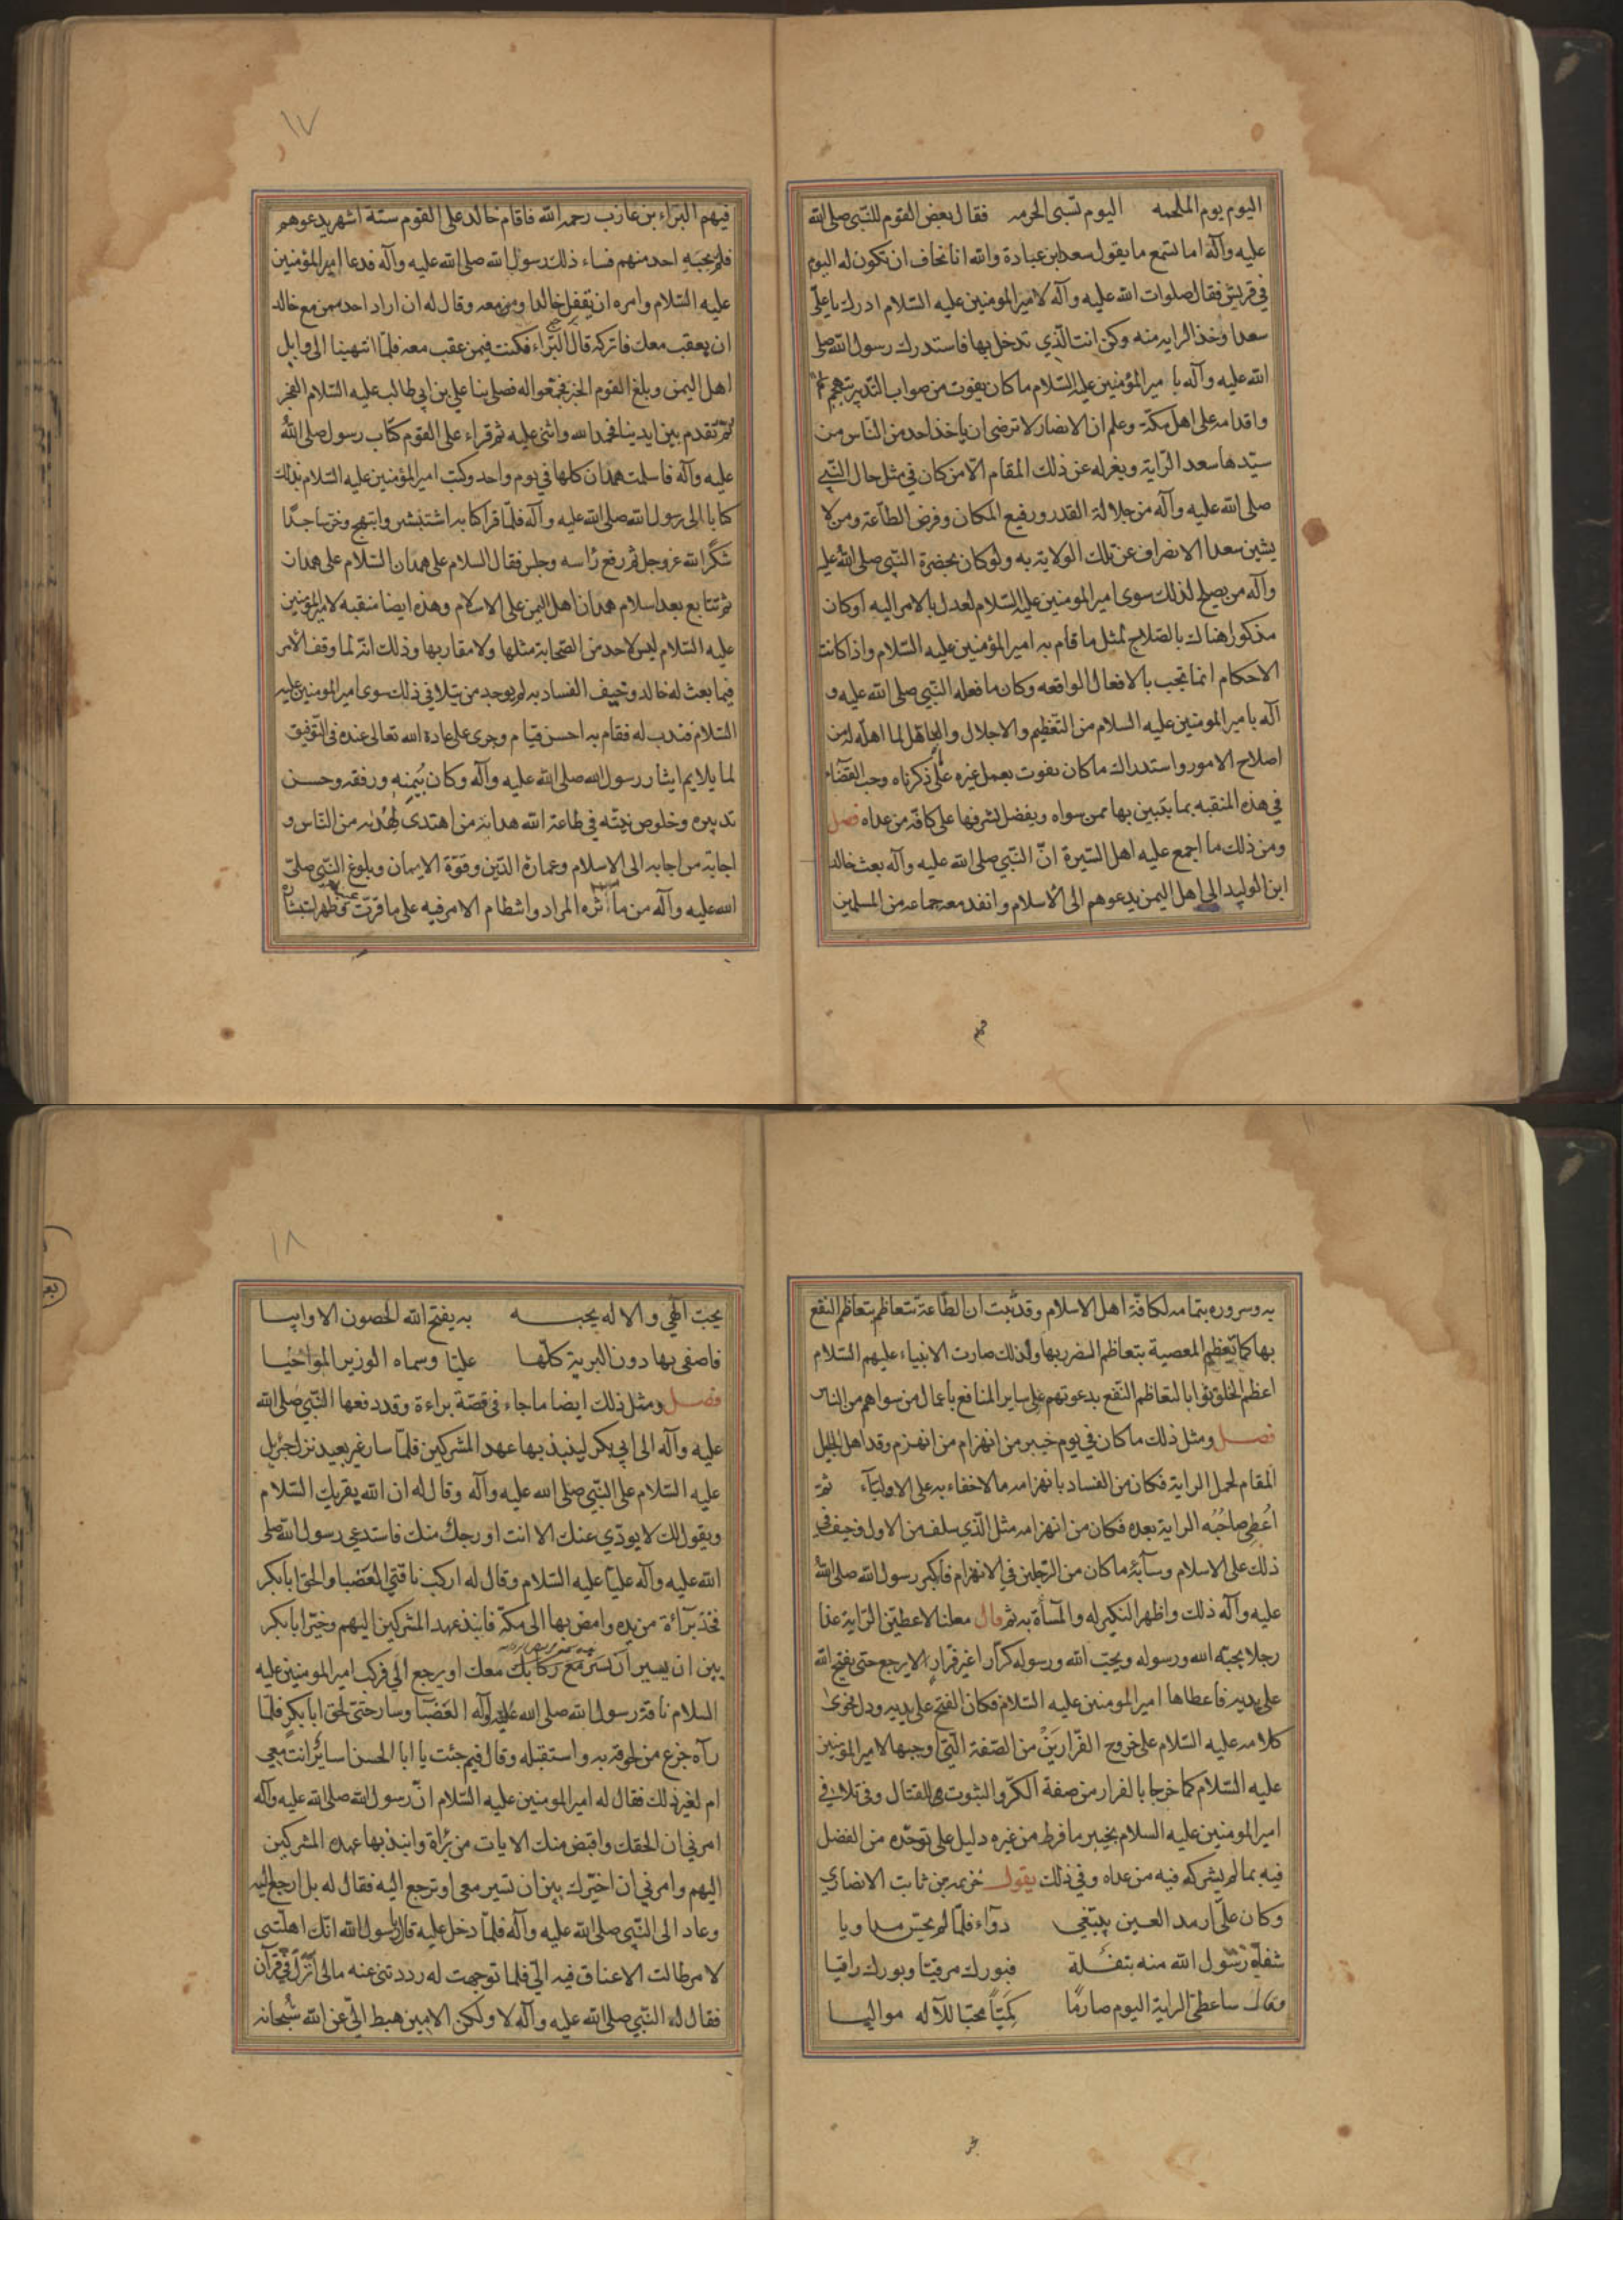 اليوم يوم الملحمه اليوم تسبى الحرمه فقال بعض القوم للنبى صلى الله
عليه وآله اما تسمع ما يقول سعد بن عبادة والله انا نخاف ان تكون له اليوم
فى قريش فقال صلوات الله عليه وآله لامير المومنين عليه السلام ادرك يا على
سعدا وخذ الرايه منه وكن انت الذي تدخل بها فاستدرك رسول الله صلى
الله عليه وآله بامير المؤمنين عليه السلام ما كان يفوت من صواب التدبير
واقدامه على اهل مكة وعلم ان الانصار لا ترضى ان ياخذ احد من الناس من
سيدها سعد الراية ويعزله عن ذلك المقام الا من كان في مثل حال النبي
صلى الله عليه وآله من جلالة القدر ورفيع المكان وفرض الطاعة ومن لا
يشين سعدا الانصراف عن تلك الولاية به ولو كان بحضرة النبى صلى الله عليه
وآله من يصلح لذلك سوى امير المومنين عليه السلام لعدل بالامر اليه او كان
مذكورا هناك بالصلاح لمثل ما قام به امير المؤمنين عليه السلام واذا كانت
الاحكام انما تجب بالافعال الواقعه وكان ما فعله النبي صلى الله عليه و
آله بامير المومنين عليه السلام من التعظيم والاجلال والتاهل لما اهله له من
اصلاح الامور واستدراك ما كان يفوت بعمل غيره على ذكرناه وجب القضاء
في هذه المنقبه بما يتبين بها ممن سواه ويفضل بشرفها على كافة من عداه فصل
ومن ذلك ما اجمع عليه اهل السيرة ان النبى صلى الله عليه وآله بعث خالد
ابن الوليد الى اهل اليمن يدعوهم الى الاسلام وانفد معه جماعه من المسلمين
ثم
١٧
فيهم البراء بن عازب رحمه الله فاقام خالد على القوم ستة اشهر يدعوهم
فلم يجبه احد منهم فساء ذلك رسول الله صلى الله عليه وآله فدعا امير المؤمنين
عليه السلام وامره ان يقفل خالدا ومن معه وقال له ان اراد احد ممن مع خالد
ان يعقب معك فاتركه قال البراء فكنت فيمن عقب معه فلما انتهينا الى وايل
اهل اليمن وبلغ القوم الخبر تجمعوا له فصلى بنا على بن ابي طالب عليه السلام الفجر
ثم تقدم بين ايدينا فحمد الله واثنى عليه ثم قراء على القوم كتاب رسول صلى الله
عليه وآله فاسلمت همدان كلها في يوم واحد وكتب امير المؤمنين عليه السلام بذلك
كتابا الى رسول الله صلى الله عليه وآله فلما قرا كتابه استبشر وابتهج وخر ساجدا
شكرا لله عز وجل ثم رفع راسه وجلس فقال السلام على همدان السلام على همدان
ثم تتابع بعد اسلام همدان اهل اليمن على الاسلام وهذه ايضا منقبه لامير المؤمنين
عليه السلام ليس لاحد من الصحابة مثلها ولا مقاربها وذلك انه لما وقف الامر
فيما بعث له خالد وخيف الفساد به لم يوجد من يتلافى ذلك سوى امير المومنين عليه
السلام فندب له فقام به احسن قيام وجرى على عادة الله تعالى عنده فى التوفيق
لما يلايم ايثار رسول الله صلى الله عليه وآله وكان بيمنه ورفقه وحسن
تدبيره وخلوص نيته في طاعة الله هداية من اهتدى بهديه من الناس و
اجابة من اجاب الى الاسلام وعمارة الدين وقوة الايمان وبلوغ النبي صلى
الله عليه وآله من ما آثره المراد وانتظام الامر فيه على ما قرت عينه وظهر استبشاره
به وسروره بتمامه لكافة اهل الاسلام وقد ثبت ان الطاعة تتعاظم بتعاظم النفع
بها كما تعظم المعصية بتعاظم الضرر بها ولذلك صارت الانبياء عليهم السلام
اعظم الخلق ثوابا لتعاظم النفع بدعوتهم على ساير المنافع باعمال من سواهم من الناس
فصل ومثل ذلك ما كان في يوم خيبر من انهزام من انهزم وقد اهل لجليل
المقام لحمل الراية فكان من الفساد بانهزامه ما لا خفاء به على الاولياء ثم
اعطى صاحبه الراية بعده فكان من انهزامه مثل الذي سلف من الاول وخيف في
ذلك على الاسلام وسآئه ما كان من الرجلين في الانهزام فاكبر رسول الله صلى الله
عليه وآله ذلك واظهر النكير له والمسآءة به ثم قال معلنا لاعطين الراية غدا
رجلا يحبه الله ورسوله ويحب الله ورسوله كرارا غير فرار لا يرجع حتى يفتح الله
على يديه فاعطاها امير المومنين عليه السلام فكان الفتح على يديه ودل فحوى
كلامه عليه السلام على خروج الفرارين من الصفة التى اوجبها لامير المؤمنين
عليه السلام كما خرجا بالفرار من صفة الكر والثبوت للقتال وفى تلافي
امير المومنين عليه السلام بخيبر ما فرط من غيره دليل على توحده من الفضل
فيه بما لم يشركه فيه من عداه وفي ذلك يقول خزيمه بن ثابت الانصاري
وكان على ارمد العين يبتغي دوآء فلما لم يحس مداويا
شفاه رسول الله منه بتفلة فبورك مرقيا وبورك راقيا
وقال ساعطى الراية اليوم صارما كميا محبا للاله مواليا
١٨
يحب الهي والاله يحبه به يفتح الله الحصون الاوابيا
فاصفى بها دون البرية كلها عليا وسماه الوزير المواخيا
فصل ومثل ذلك ايضا ما جاء فى قصة براءة وقد دفعها النبى صلى الله
عليه وآله الى ابي بكر لينبذ بها عهد المشركين فلما سار غير بعيد نزل جبريل
عليه السلام على النبى صلى الله عليه وآله وقال له ان الله يقريك السلام
ويقول لك لا يودي عنك الا انت او رجل منك فاستدعى رسول الله صلى
الله عليه وآله عليا عليه السلام وقال له اركب ناقتى العضبا والحق ابا بكر
فخذ برآءة من يده وامض بها الى مكة فانبذ عهد المشركين اليهم وخير ابا بكر
بين ان يسير مع ركابك معك او يرجع الي فركب امير المومنين عليه
السلام ناقة رسول الله صلى الله عليه وآله العضبا وسار حتى لحق ابا بكر فلما
رآه جزع من لحوقه به واستقبله وقال فيم جئت يا ابا الحسن اسائر انت معي
ام لغير ذلك فقال له امير المومنين عليه السلام ان رسول الله صلى الله عليه وآله
امرني ان الحقك واقبض منك الايات من براة وانبذ بها عهد المشركين
اليهم وامرني ان اخيرك بين ان تسير معى او ترجع اليه فقال له بل ارجع اليه
وعاد الى النبى صلى الله عليه وآله فلما دخل عليه قال يا رسول الله انك اهلتنى
لامر طالت الاعناق فيه الى فلما توجهت له رددتنى عنه مالى انزل في قرآن
فقال له النبي صلى الله عليه وآله لا ولكن الامين هبط الى عن الله سبحانه